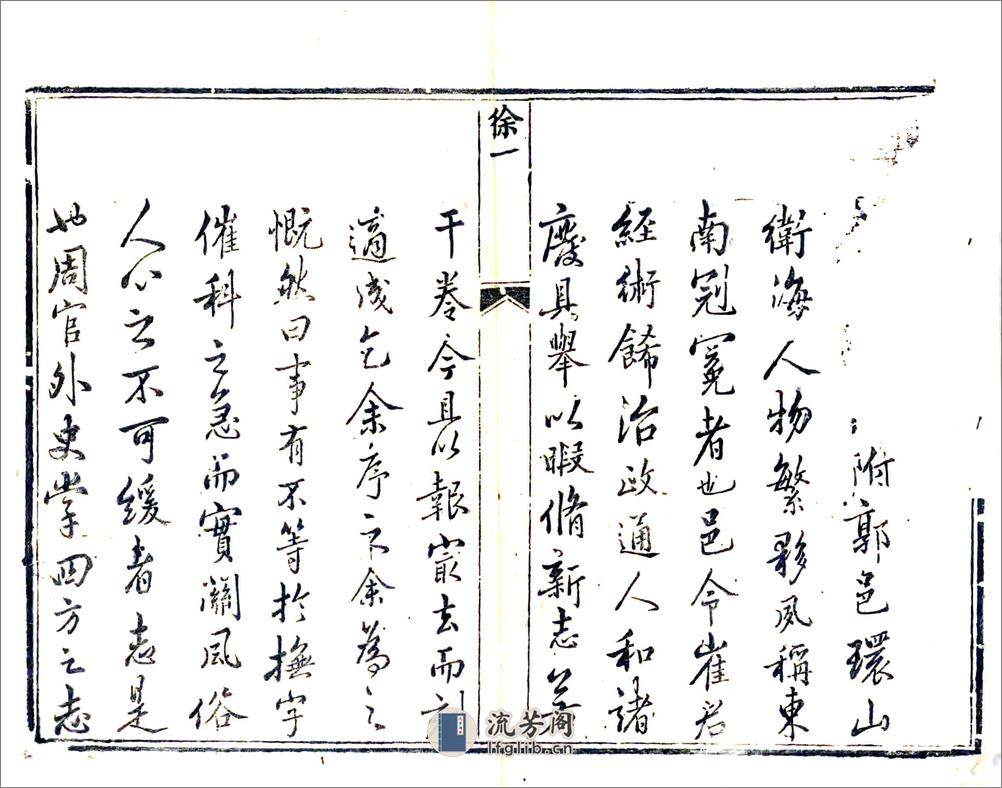 附郭邑環山
衛海人物繁夥夙稱東
南冠冕者也邑令崔君
經術餙治政通人和諸
廢具舉以暇脩新志若
徐一
干卷今且以報最去而刻
適成乞余序之余為之
慨然曰事有不等於撫字
催科之急而實關風俗
人心之不可緩者志是
也周官外史掌四方之志
流芳阁
lfglib.cn